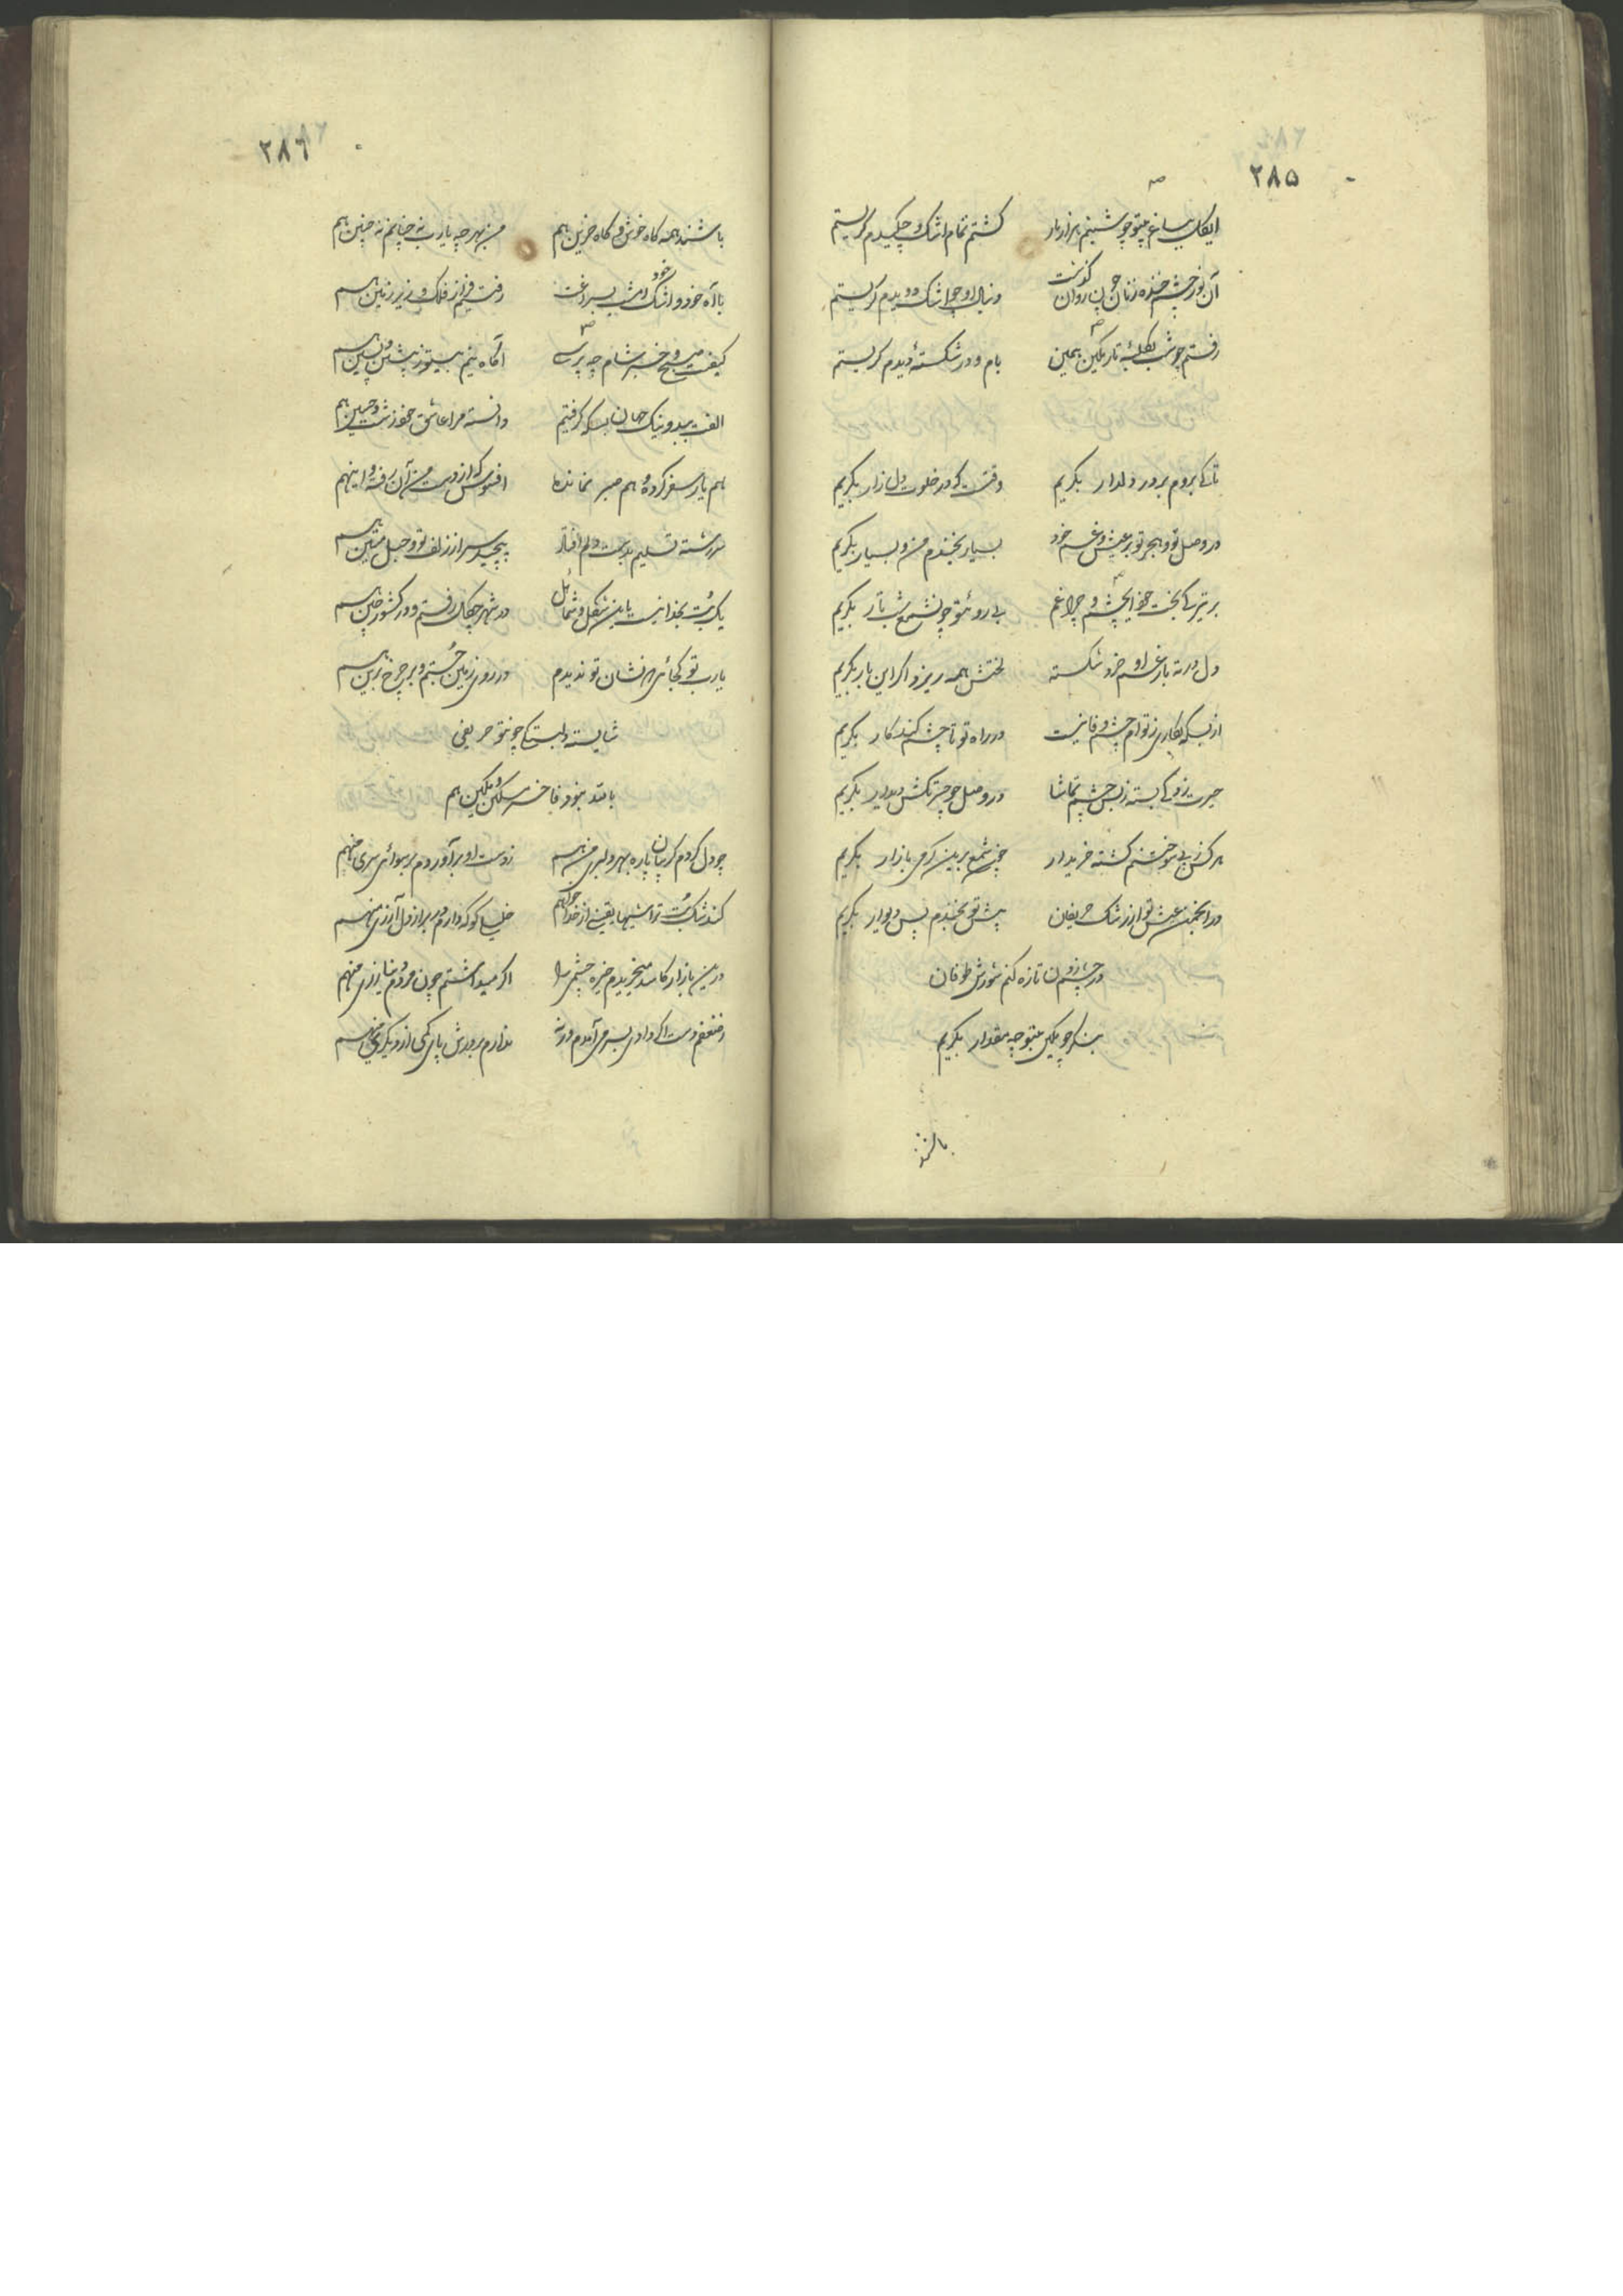 ۲۸۵
ایگل بباغ بیتو چو شبنم هزار بار گشتم تمام اشک و چکیدم گریستم
آن نور چشم خنده زنان چون روان گذشت دنبال او چو اشک دویدم گریستم
رفتم چو شب بکلبه تاریک بام و در شکسته دیدم گریستم
تا کی بروم بر در دلدار بگریم وقتست که در خلوت دل زار بگریم
در وصل تو و هجر تو بر عیش و غم خود بسیار بخندم من و بسیار بگریم
بر تیرگی بخت خود ایچشم و چراغم بی روی تو چون شمع شب تار بگریم
دل در ته بار غم او خرد شکسته لختش همه ریزد اگر این بار بگریم
از بسکه نگاری ز توام چشم وفا نیست در راه تو تا چشم کند کار بگریم
حیرت زدگی بسته ز بس چشم تماشا در وصل چو حسرتکش دیدار بگریم
هر کس ز پی سوختنم گشته خریدار چون شمع برین گرمی بازار بگریم
در انجمن عیش تو از رشک حریفان پیش تو بخندم پس دیوار بگریم
در چشم زدن تازه کنم شورش طوفان
بیتو چه مقدار بگریم
باشند
۲۸۶
باشند همه گاه خوش و گاه حزین هم من بهر چه یارب نه چنانم نه چنین هم
با آه خود و اشک خود امشب بسراغت رفتیم فراز فلک و زیر زمین هم
کیفیت صبح و خبر شام چه پرسی آگاه نیم بیتو ز پیشین و پسین هم
الفت ببد و نیک جهان بسکه گرفتیم دانسته مرا عاشق خود زشت و حسین هم
هم یار سفر کرده و هم صبر نمانده افسوس که از دست من آن رفته و اینهم
سررشته تسلیم بدست دلم افتاد پیچید سر از زلف تو و حبل متین هم
یک بت بخدا نیست باین شکل و شمائل در شهر چگل رفتم و در کشور چین هم
یارب تو کجائی که نشان تو ندیدم در روی زمین جستم و بر چرخ برین هم
شایسته دلبستگی چون تو حریفی
باشد نبود فاخر مسکین هم
چو دل کردم گریبان پاره بهر دلبری منهم ز دست او برآوردم برسوائی سری منهم
کند شک بت تراشیها یقینی از خدا خواهم خلیلی کو که دارم در بر از دل آزری منهم
درین بازار کاسد میخریدم خیره چشمی را اگر میداشتم چون مردم دنیا زری منهم
ز ضعفم دست اگر دادی بسر می آمدم ورنه ندارم بر درش پای کمی از دیگری منهم